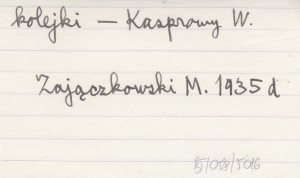 kolejki — Kasprowy W.
Zajączkowski M. 1935 d